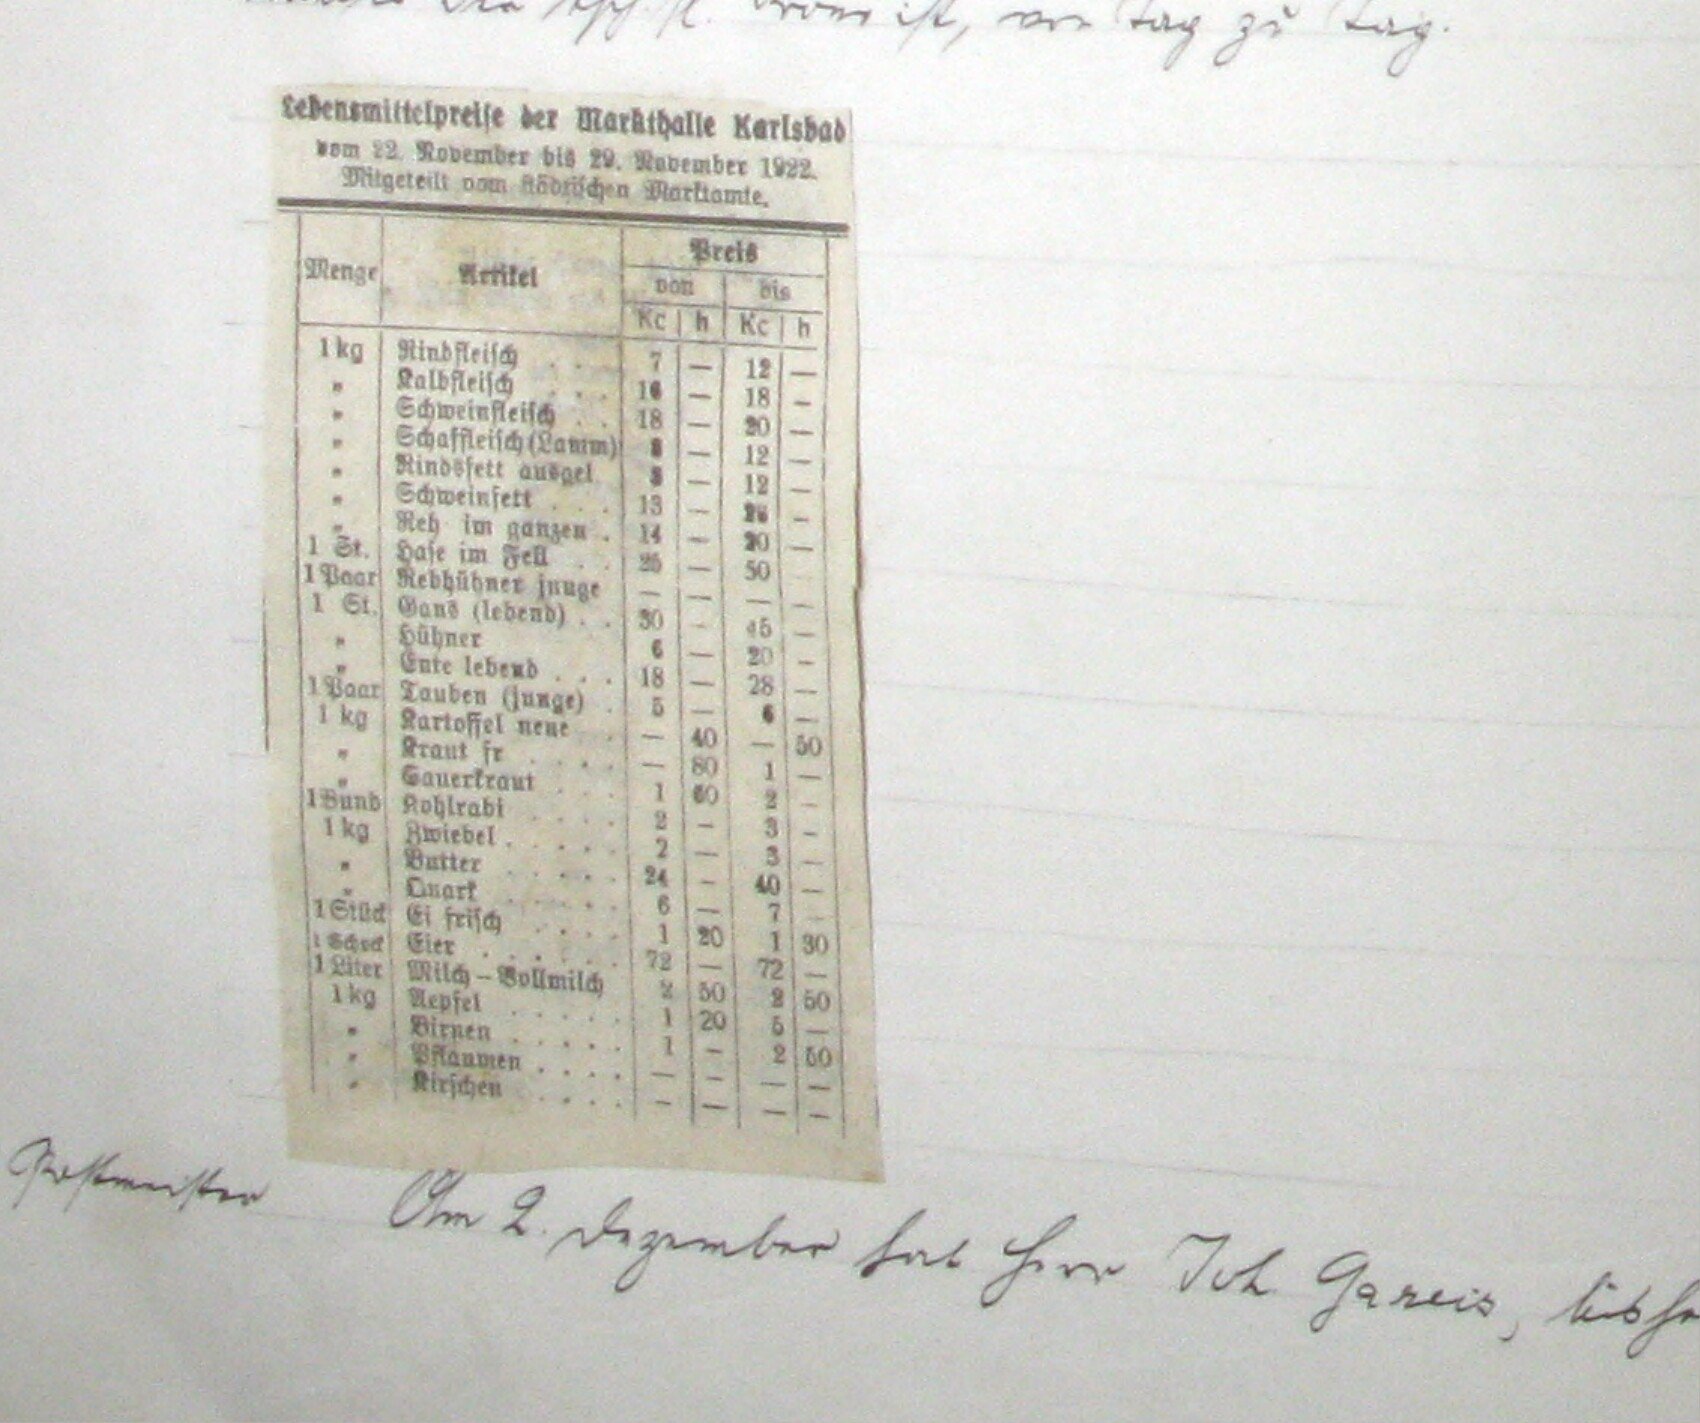 ist, von Tag zu Tag.
Lebensmittelpreise der Markthalle Karlsbad
vom 22. November bis 29. November 1922.
Mitgeteilt vom städtischen Marktamte.
Menge Artikel Preis
von bis
Kc h Kc h
1 kg Rindfleisch . . 7 — 12 —
„ Kalbfleisch . . . 16 — 18 —
„ Schweinfleisch . . 18 — 20 —
„ Schaffleisch (Lamm) 8 — 12 —
„ Rindsfett ausgel 8 — 12 —
„ Schweinfett . . . 13 — —
„ Reh im ganzen . 14 — 20 —
1 St. Hase im Fell . . 25 — 50
1 Paar Rebhühner junge — — — —
1 St. Gans (lebend) . . 30 - 45 —
„ Hühner 6 — 20 —
„ Ente lebend . . . 18 — 28 —
1 Paar Tauben (junge) . 5 — 6 —
1 kg Kartoffel neue . — 40 — 50
„ Kraut fr . . . . — 80 1 —
„ Sauerkraut . . . 1 60 2 -
1 Bund Kohlrabi . . . . 2 - 3 —
1 kg Zwiebel . . . . . 2 — 3 —
„ Butter . . . . . 24 - 40 —
„ Quark . . . . . 6 — 7 —
1 Stück Ei frisch . . . . 1 20 1 30
1 Schock Eier . . . . . . 72 — 72 —
1 Liter Milch – Vollmilch 2 50 2 50
1 kg Aepfel . . . . . 1 20 5 —
„ Birnen . . . . . 1 - 2 50
„ Pflaumen . . . . — - — —
„ Kirschen . . . . - — — —
Postmeister Am 2. Dezember hat Herr Joh Gareis, bisher